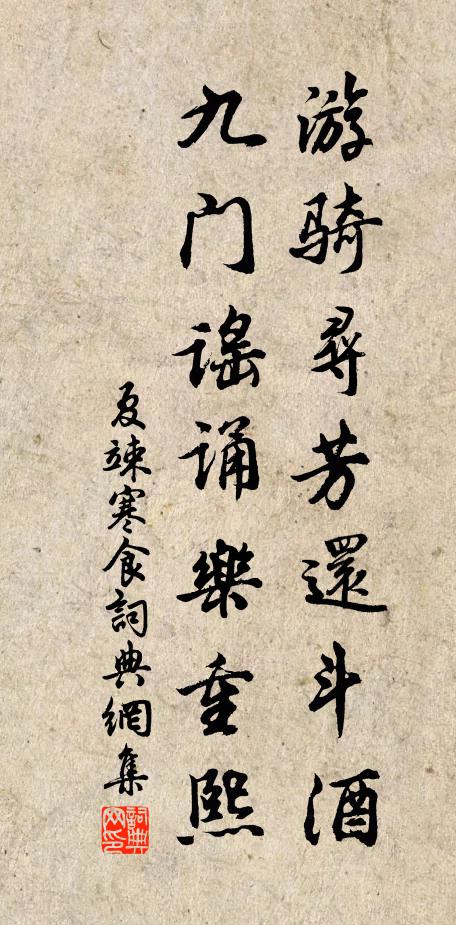 游骑尋芳還斗酒
九门谣诵樂重熙
夏竦寒食詞典網集
詞典网印